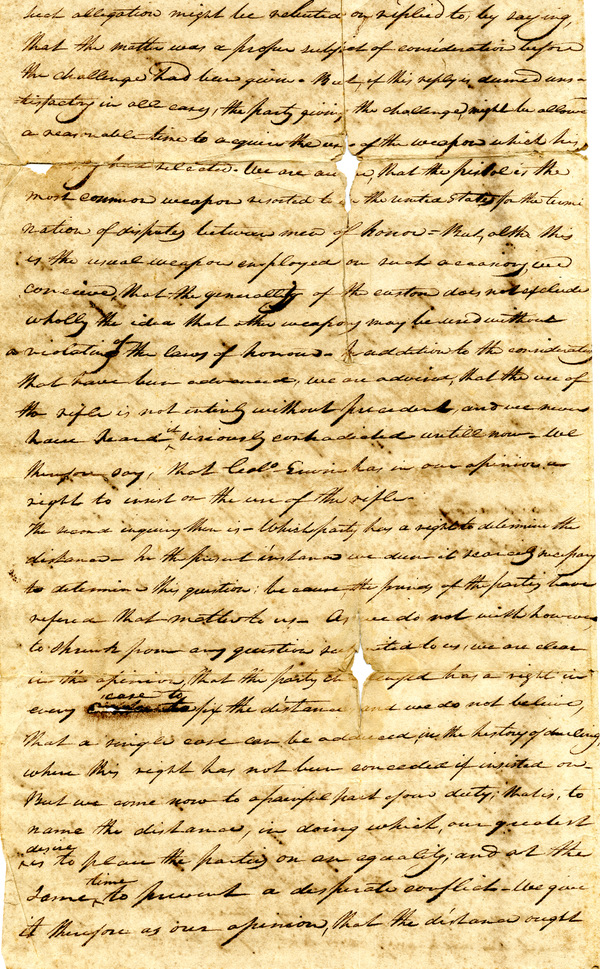 such allegation might be rebutted or replied to, by saying,
that the matter was a proper subject of consideration before
the challenge had been given - But, if this reply is deemed unsa-
tisfactory in all cases, the party giving the challenge, might be allowed
a reasonable time to acquire the use of the weapon which his
selected. We are aware, that the pistol is the
most common weapon resorted to in the united states for the termi
nation of disputes between men of honor = But, altho this
is the usual weapon employed on such occasions, we
conceive, that the generality of the custom does not exclude
wholly the idea that other weapons may be used without
a violating of the laws of honour. In addition to the considerations
that have been advanced, we are advised, that the use of
the rifle is not entirely without precedent, and we never
have heard it seriously contradicted untill now - We
therefore say, that Colo. Erwin has in our opinion a
right to insist on the use of the rifle.
The second inquiry then is - Which party has a right to determine the
distance - In the present instance we deem it scarcely necessary
to determine this question; because the friends of the parties have
refered that matter to us - As we do not wish however
to shrink from any question submitted to us, we are clear
in the opinion, that the party challenged has a right in
every case to fix the distance and we do not believe,
that a single case can be adduced, in the history of dueling,
where this right has not been conceded if insisted on -
But we come now to a painful part of our duty; that is, to
name the distance, in doing which, our greatest
desire is to place the parties on an equality; and at the
same time, to prevent a desperate conflict - We give
it therefore as our opinion, that the distance ought